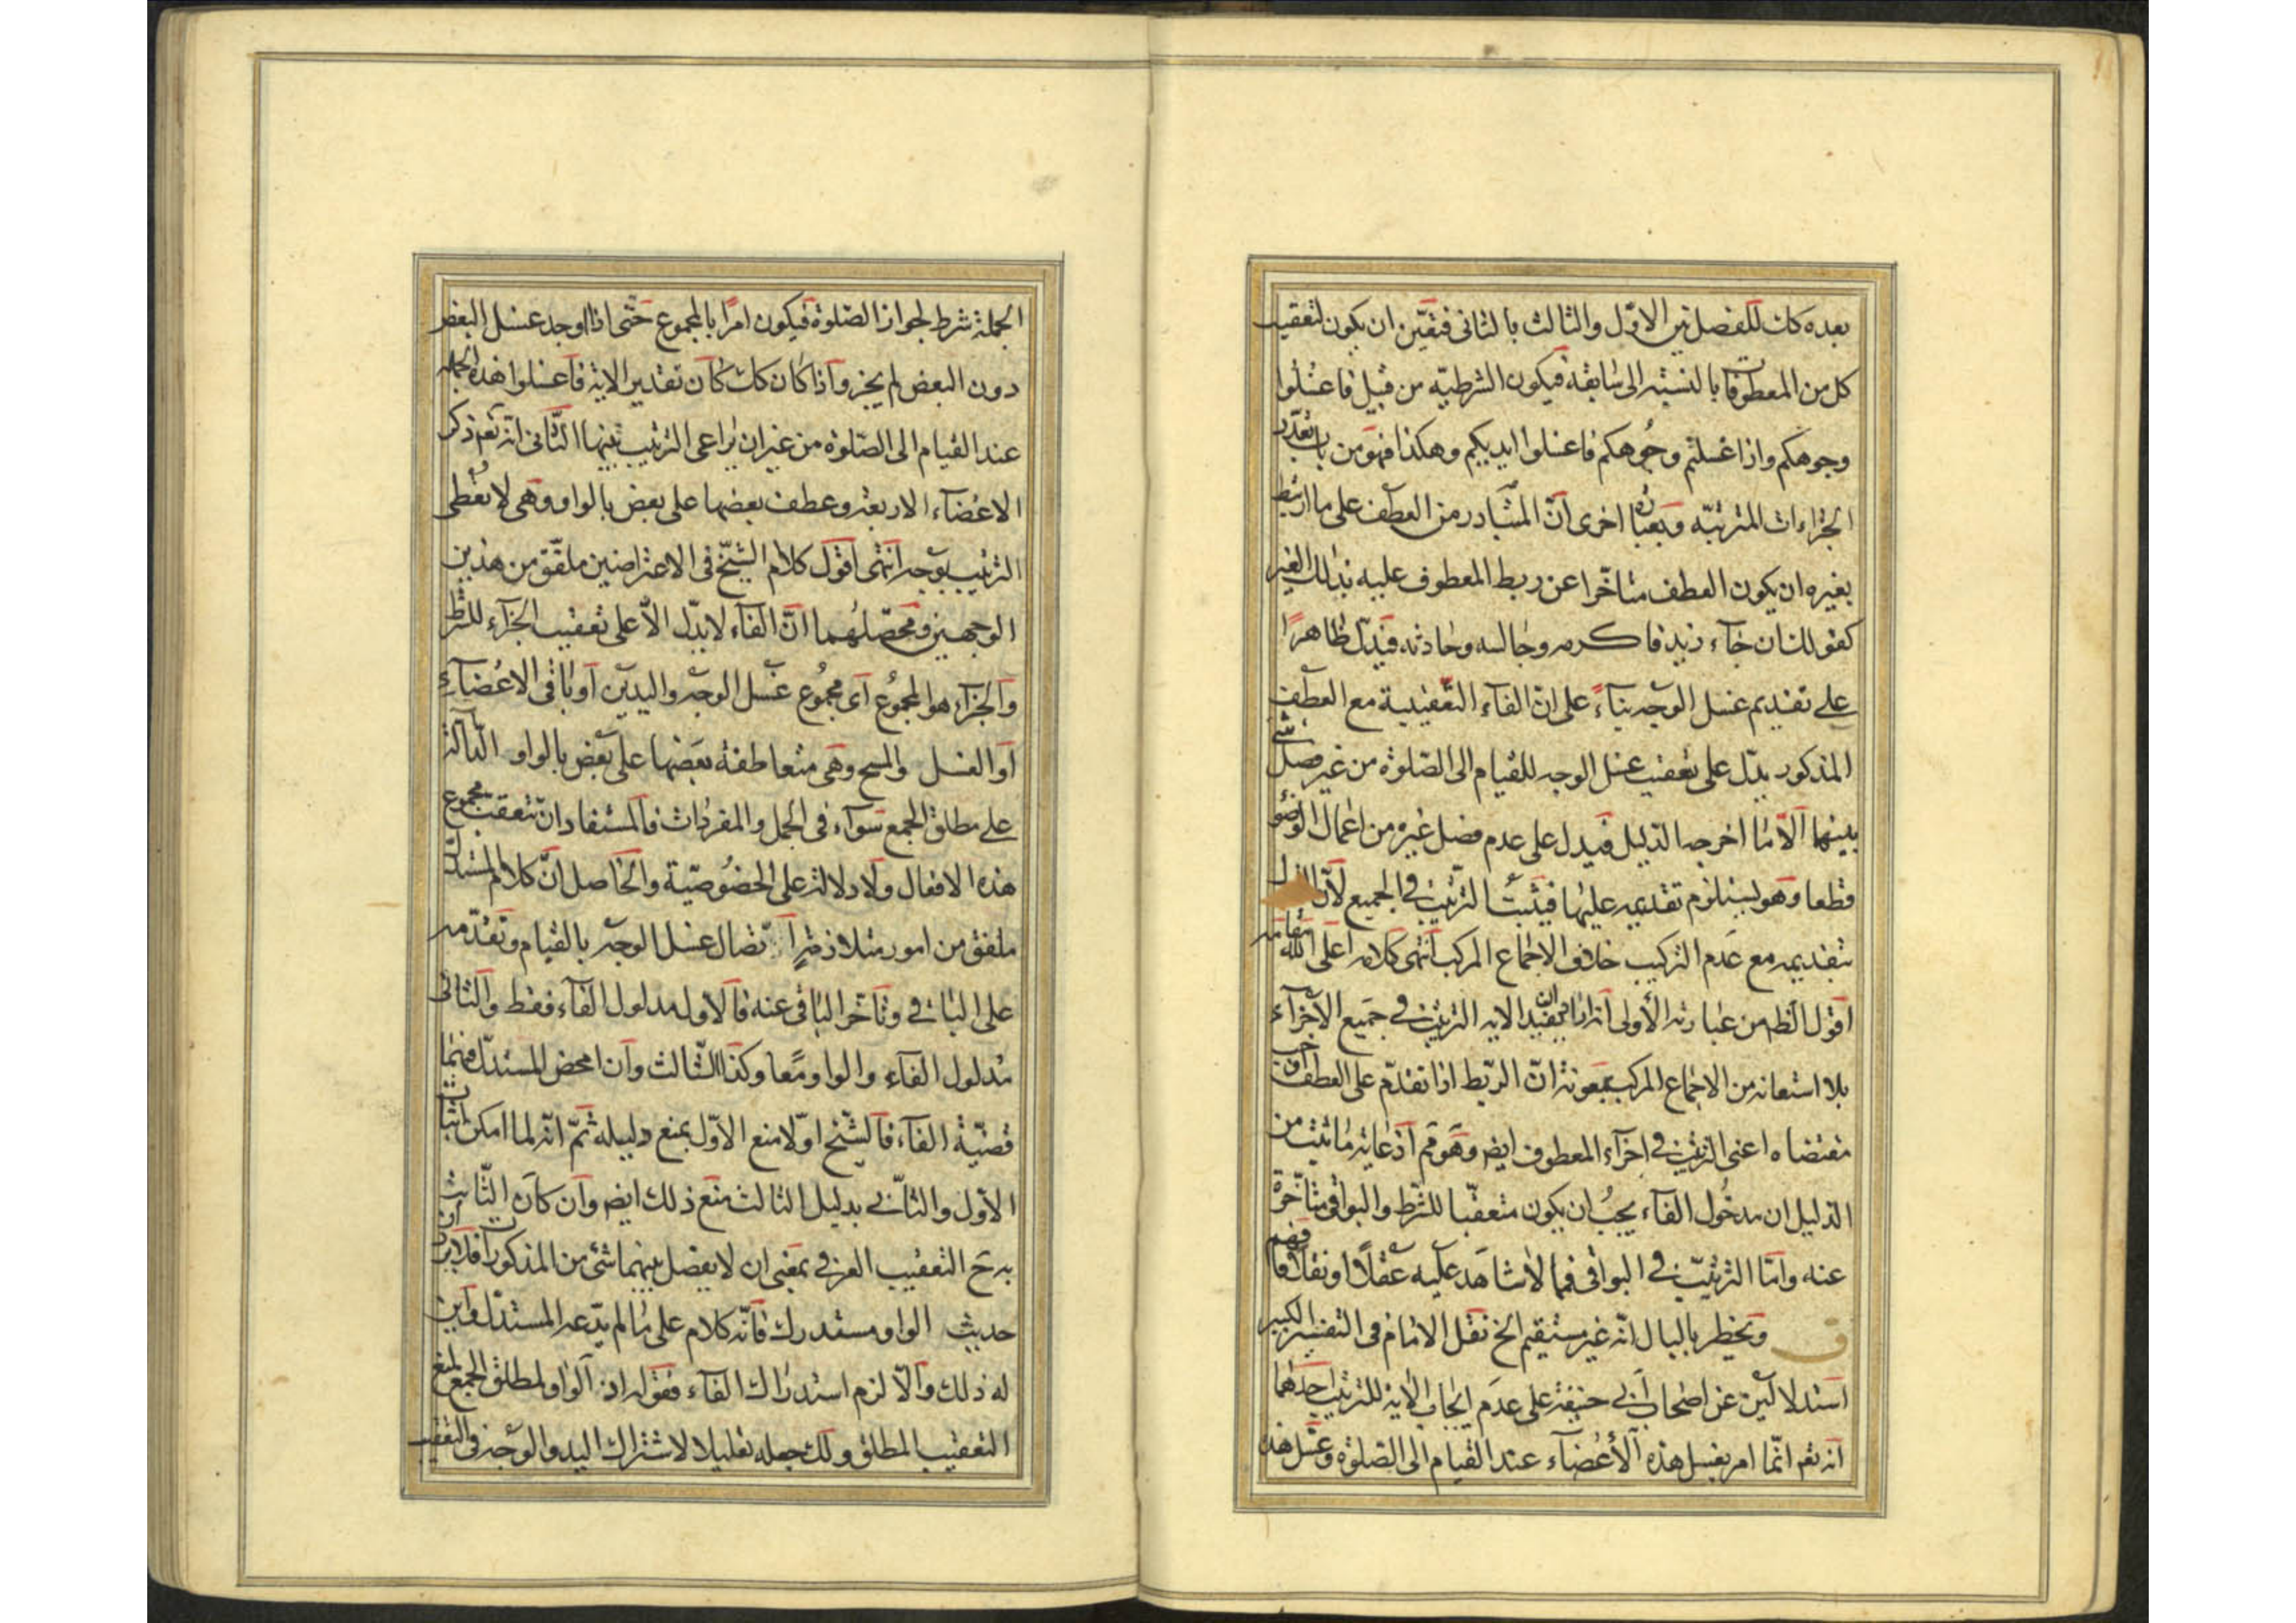 بعده كان للفصل بين الاوّل والثالث بالثانى فتعيّن ان يكون لتعقيب
كل من المعطوفات بالنسبة الى سابقه فيكون الشرطيّه من قبيل فاغسلوا
وجوهكم واذا غسلتم وجوهكم فاغسلوا ايديكم وهكذا فهو من باب تعدّد
الجزاءات المترتبّه وبعباره اخرى انّ المتبادر من العطف على ما ارتبط
بغيره ان يكون العطف متاخّرا عن ربط المعطوف عليه بذلك الغير
كقولك ان جآء زيد فاكرمه وجالسه وحادثه فيدلّ ظاهرًا
على تقديم غسل الوجه بنآءً على انّ الفاء التعقيبية مع العطف
المذكور يدلّ على تعقيب غسل الوجه للقيام الى الصّلوة من غير فصل شئ
بينهما الاّ ما اخرجه الدّليل فيدل على عدم فصل غيره من اعمال الوضوء
قطعا وهو يستلزم تقديمه عليها فيثبت الترتيب فى الجميع لانّ القول
بتقديمه مع عدم التركيب خلاف الاجماع المركب انتهى كلامه اعلى الله مقامه
اقول الظ من عبارته الأولى انه اراد ان يفيد الايه الترتيب فى جميع الاجزآء
بلا استعانه من الاجماع المركب بمعونة انّ الربط اذا تقدّم على العطف
مقتضاه اعنى الترتيب فى اجزآء المعطوف ايض وهو مم اذ غايته ما ثبت من
الدليل ان مدخُول الفآء يجبُ ان يكون متعقّبا للشّرط والبواقى متأخّرة
عنه وامّا الترتيب فى البواقى فمما لا شاهد عليه عقلًا او نقلًا فافهم
ق ويخطر بالبال انّه غير مستقيم الخ نقل الامام فى التفسير الكبير
استدلالين عن اصحاب ابى حنيفة على عدم ايجاب الايه للترتيب احدهما
انه تعم انّما امر بغسل هذه الأعضآء عند القيام الى الصّلوة وغسل هذه
الجملة شرط لجواز الصّلوة فيكون امرًا بالمجموع حتّى اذا اوجد غسل البعض
دون البعض لم يجز واذا كان كك كان تقدير الاية فاغسلوا هذه الجمله
عند القيام الى الصّلوة من غير ان يراعى الترتيب بينها الثّانى انه تعم ذكر
الاعضآء الاربعة وعطف بعضها على بعض بالواو وهى لا تعُطى
الترتيب بوجه انتهى اقول كلام الشيخ فى الاعتراضين ملفّق من هذين
الوجهين ومحصّلهُما انّ الفآء لا يدّل الاّ على تعقيب الجزآء للشرط
والجزآء هو المجموُع اى مجموُع غسل الوجه واليدين او باقى الاعضآء
او الغسل والمسح وهى متعاطفة بعضها على بعض بالواو الدّالّة
على مطلق الجمع سوآء فى الجمل والمفردات فالمستفاد ان تتعقب مجموع
هذه الافعال ولا دلالة على الخصُوصيّة والحاصل انّ كلام المستدل
ملفق من امور مثلا زمة اتصال غسل الوجه بالقيام وتقدّمه
على الباقى وتأخّر الباقى عنه فالاول مدلول الفآء فقط والثانى
مدلول الفآء والواو معًا وكذا الثّالث وان امحض المستدّل فيهما
قضيّة الفآء فالشّيخ اوّلا منع الاوّل بمنع دليله ثمّ انّه لما امكن اثبات
الاوّل والثانى بدليل الثالث منع ذلك ايض وان كان الثّابت
به ح التعقيب العرفى بمعنى ان لا يفصل بينهما شئ من المذكورات فلا يرد ان
حديث الواو مستدرك فانّه كلام على ما لم يدّعه المستدّل واين
له ذلك والاّ لزم استدراك الفآء فقوله ان الواو لمطلق الجمع لمنع
التعقيب المطلق ولك جعله تعليلا لاشتراك اليد والوجه فى التعقيب